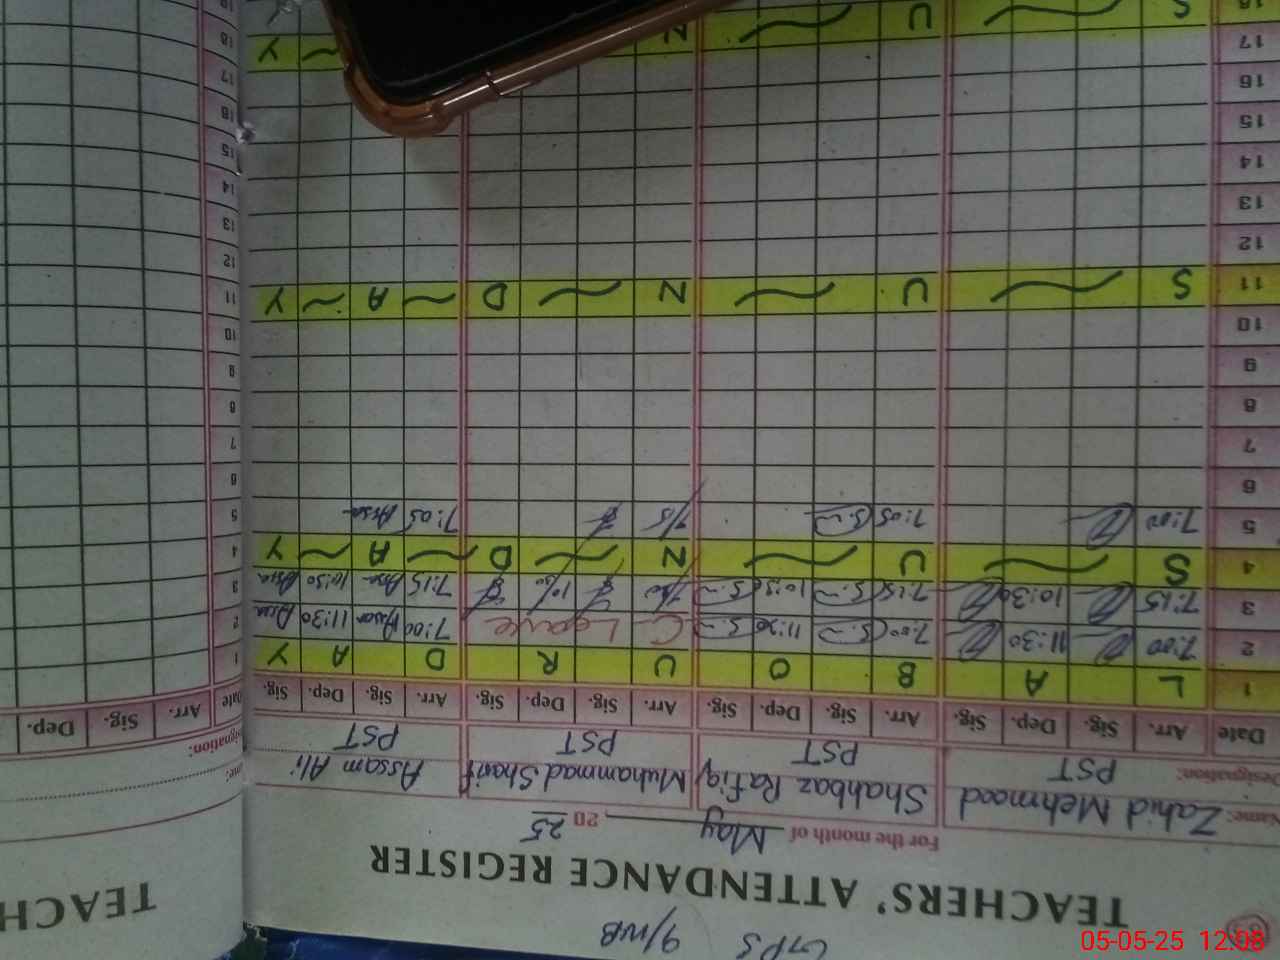 GPS 9/WB
TEACHERS' ATTENDANCE REGISTER
For the month of May 2025
Name: Zahid Mehmood Shahbaz Rafiq Muhammad Sharif Assam Ali
Designation: PST PST PST PST
Date Arr. Sig. Dep. Sig. Arr. Sig. Dep. Sig. Arr. Sig. Dep. Sig. Arr. Sig. Dep. Sig.
1 L A B O U R D A Y
2 7:00 11:30 7:00 11:30 C Leave 7:00 11:30
3 7:15 10:30 7:15 10:30 7:15 10:30
4 S U N D A Y
5 7:00 7:05 7:05
6
7
8
9
10
11 S U N D A Y
12
13
14
15
16
17
18 S U N Y
TEACH
signation:
Date Arr. Sig. Dep.
1
2
3
4
5
6
7
8
9
10
11
12
13
14
15
16
17
18
05-05-25 12:08